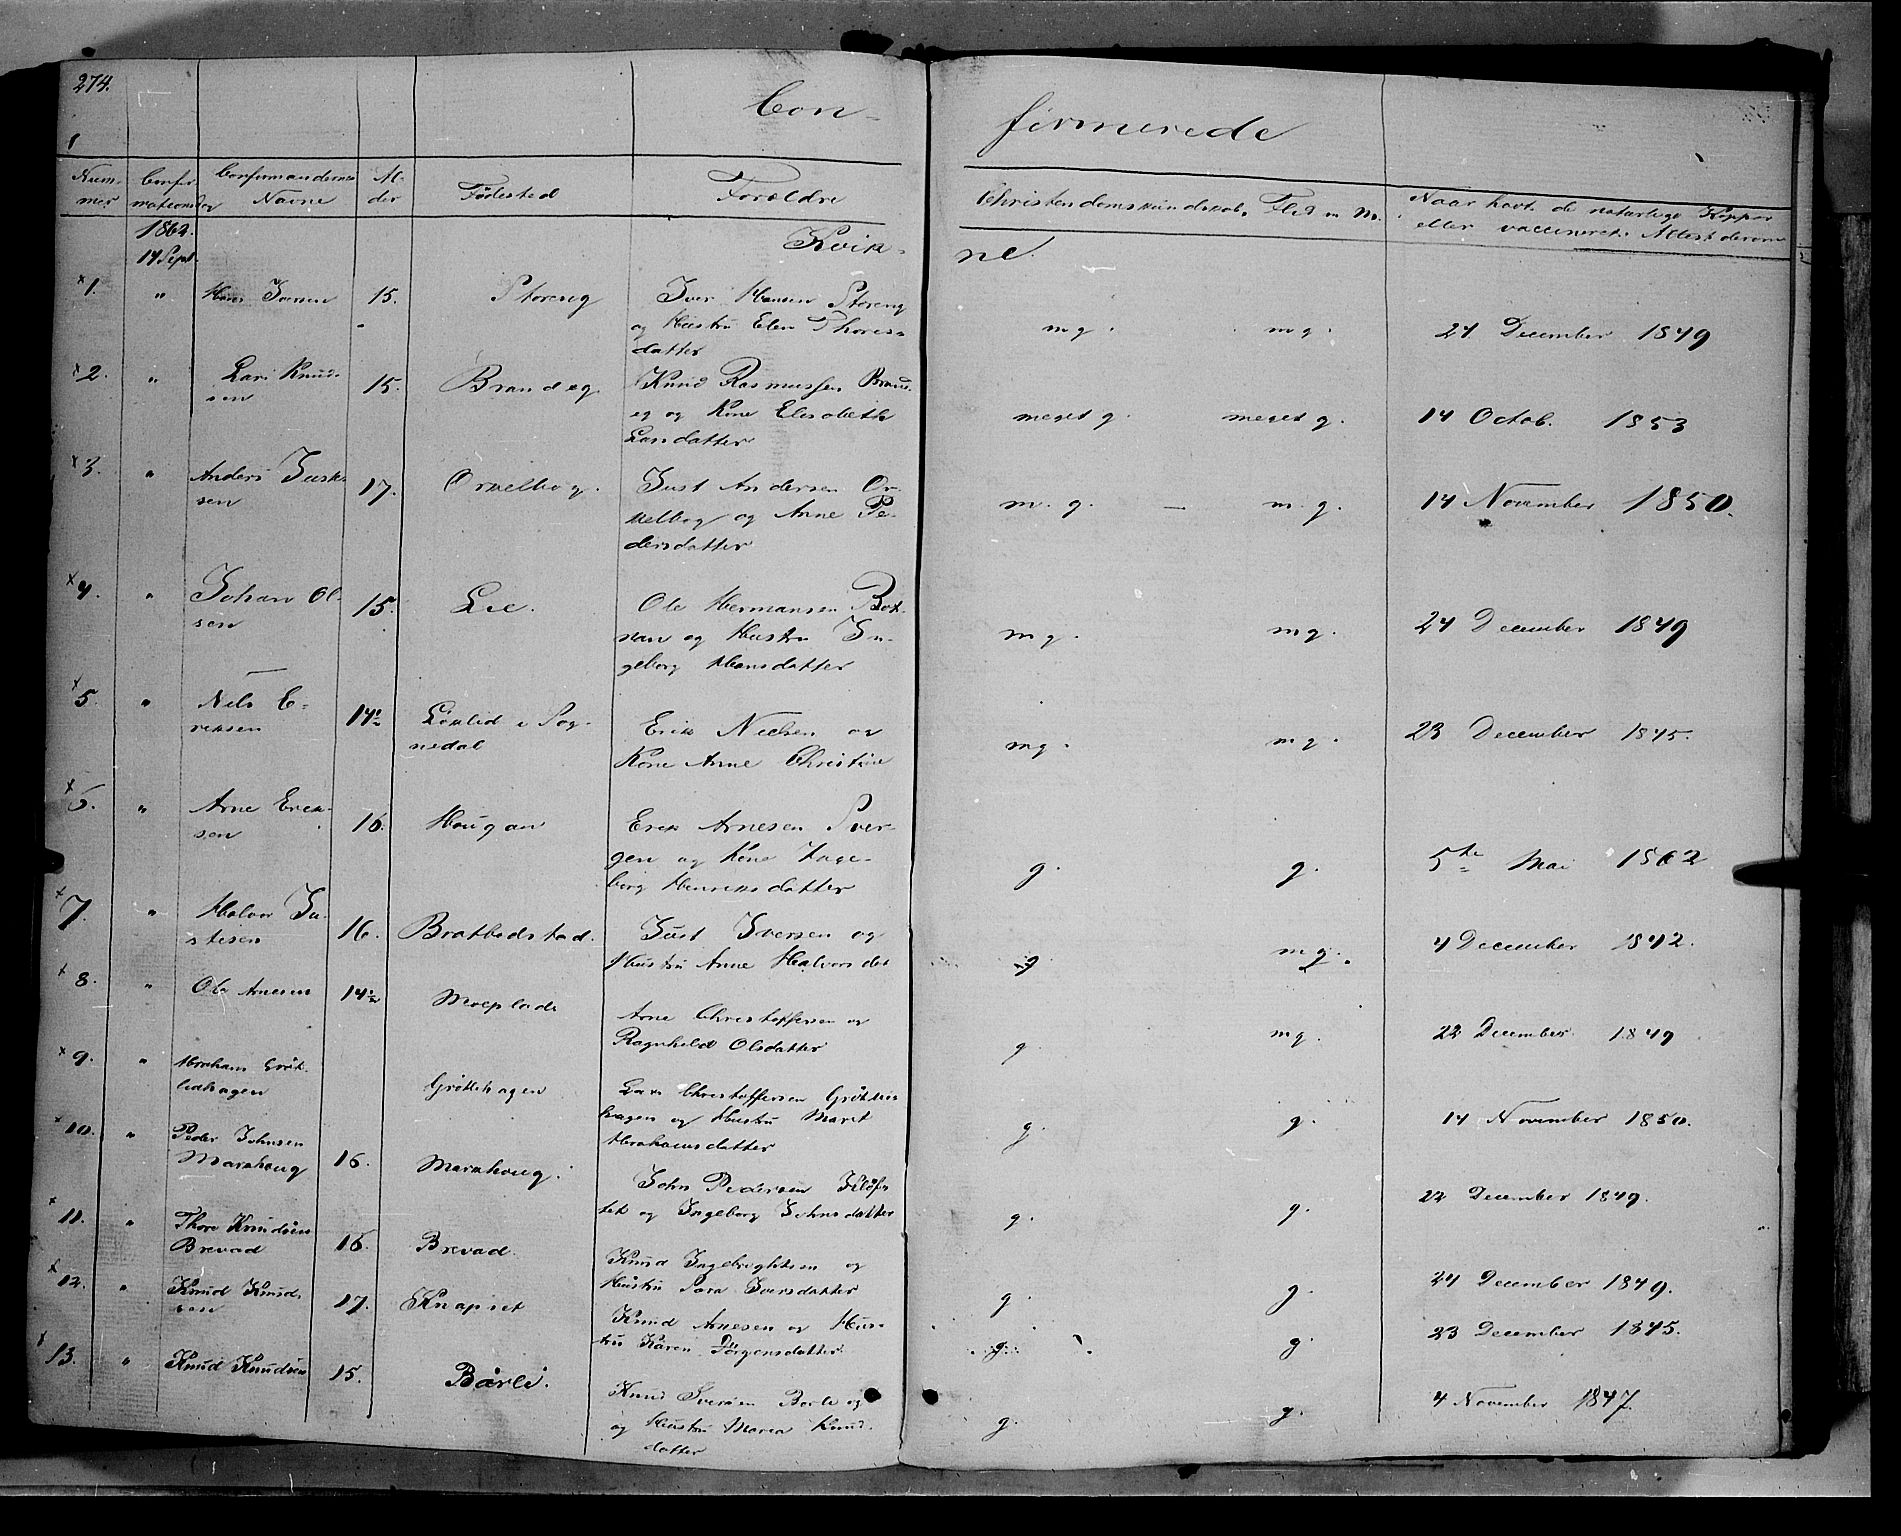 274.
Con-
firmerede
Nummer Confirmationsdag Confirmandernes Navne Alder Fødested Forældre Christendomskundskab. Flid og M. Naar havt de naturlige Kopper eller vaccineret. Attest derom
1862. Kvik-
ne.
14 Sept.
1. " Hans Iversen 15. Storeng Iver Hansen Storeng
og Hustru Elen Thores-
datter m g. m g. 24 December 1849
2. " Lars Knud-
sen 15. Brandeg Knud Rasmussen Brand-
eg og Kone Elisabeth
Larsdatter meget g. meget g. 14 Octob. 1853
3. " Anders Just-
sen 17. Orkelbog. Just Andersen Or-
kelbog og Anne Pe-
dersdatter m. g. — m. g. 14 November 1850.
4. " Johan Ol-
sen 15. Lie. Ole Hermansen
og Hustru In-
geborg Hansdatter m g. m g. 24 December 1849
5. " Nils E-
riksen 14½ i Sog-
nedal Erik Nielsen og
Kone Anne Christine m g. m g. 23 December 1845.
6. " Arne Erik-
sen 16. Haugan Erik Arnesen
og Kone Inge-
borg Henriksdatter g. g. 5te Mai 1862
7. " Halvor Ju-
stsen 16. Bratbedstad. Just Iversen og
Hustru Anne Halvorsdat g m g. 4 December 1842.
8. " Ole Arnesen 14½ Moeplads Arne Christoffersen og
Ragnhild Olsdatter g. m g. 22 December 1849
9. " Abraham
Grøtlihagen Lars Christoffersen
hagen og Hustru Marit
Abrahamsdatter g. g. 14 November 1850.
10. " Peder Johnsen
Marahoug 16. Marahoug. John Pedersen
og Ingeborg Johnsdatter g. g. 22 December 1849.
11. " Thore Knudsen
Brevad 16. Brevad. Knud Ingebrightsen og
Hustru Sara Iversdatter g. g. 24 December 1849.
12. " Knud Knud-
sen 17. Knapset Knud Arnesen og Hus-
tru Karen Jørgensdatter g. g. 23 December 1845.
13. " Knud Knudsen 15. Bårli. Knud Iversen Borli og
og Hustru Maren Knud-
datter g. g. 4 November 1847.